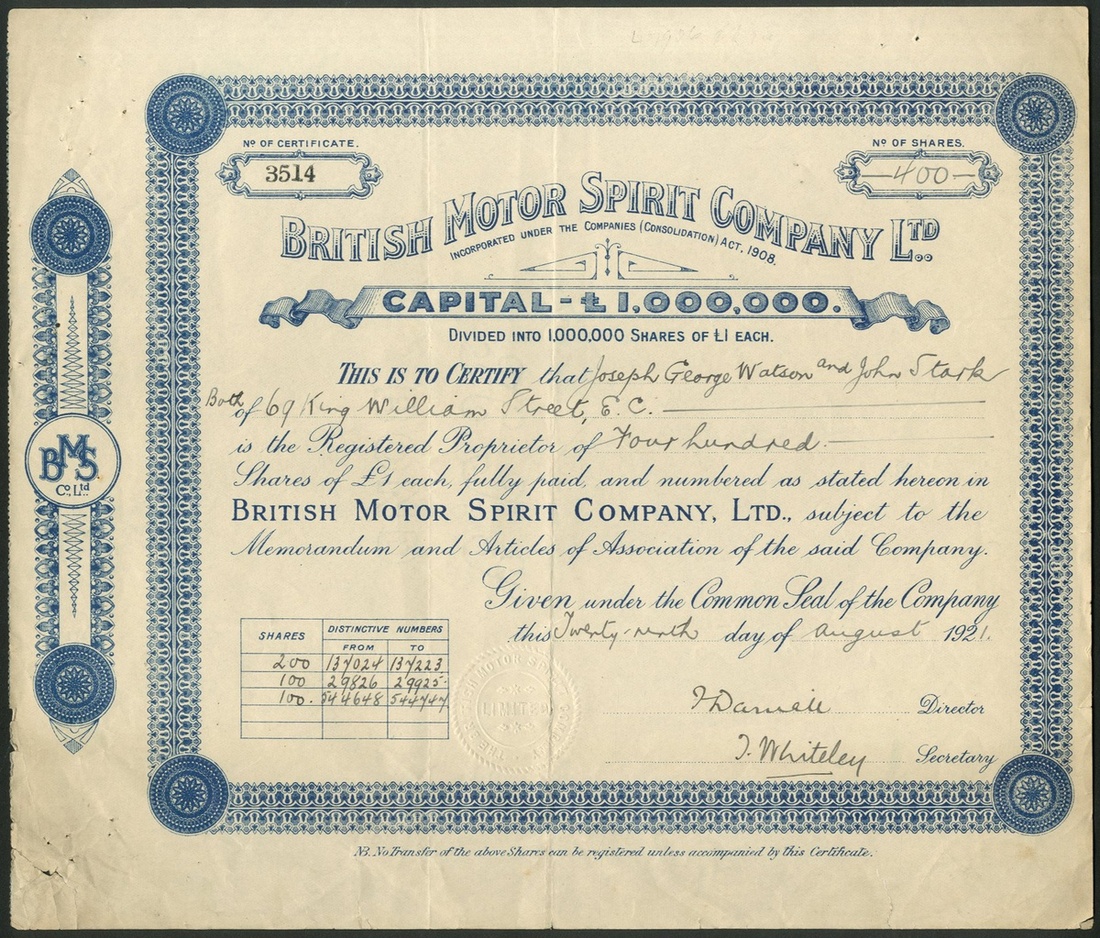 Nº OF CERTIFICATE.
3514
Nº OF SHARES.
—400—
BRITISH MOTOR SPIRIT COMPANY LTD..
INCORPORATED UNDER THE COMPANIES (CONSOLIDATION) ACT, 1908.
CAPITAL - £1,000,000.
DIVIDED INTO 1,000,000 SHARES OF £1 EACH.
THIS IS TO CERTIFY that Joseph George Watson and John Stark
Both of 69 King William Street, E.C.
is the Registered Proprietor of Four hundred
Shares of £1 each, fully paid, and numbered as stated hereon in
BRITISH MOTOR SPIRIT COMPANY, LTD., subject to the
Memorandum and Articles of Association of the said Company.
Given under the Common Seal of the Company
this Twenty-ninth day of August 1921.
SHARES DISTINCTIVE NUMBERS
FROM TO
200 137024 137223
100 29826 29925
100. 544648 544747
LIMITED
Director
J. Whiteley Secretary
BMS
Co. Ltd.
NB. No Transfer of the above Shares can be registered unless accompanied by this Certificate.